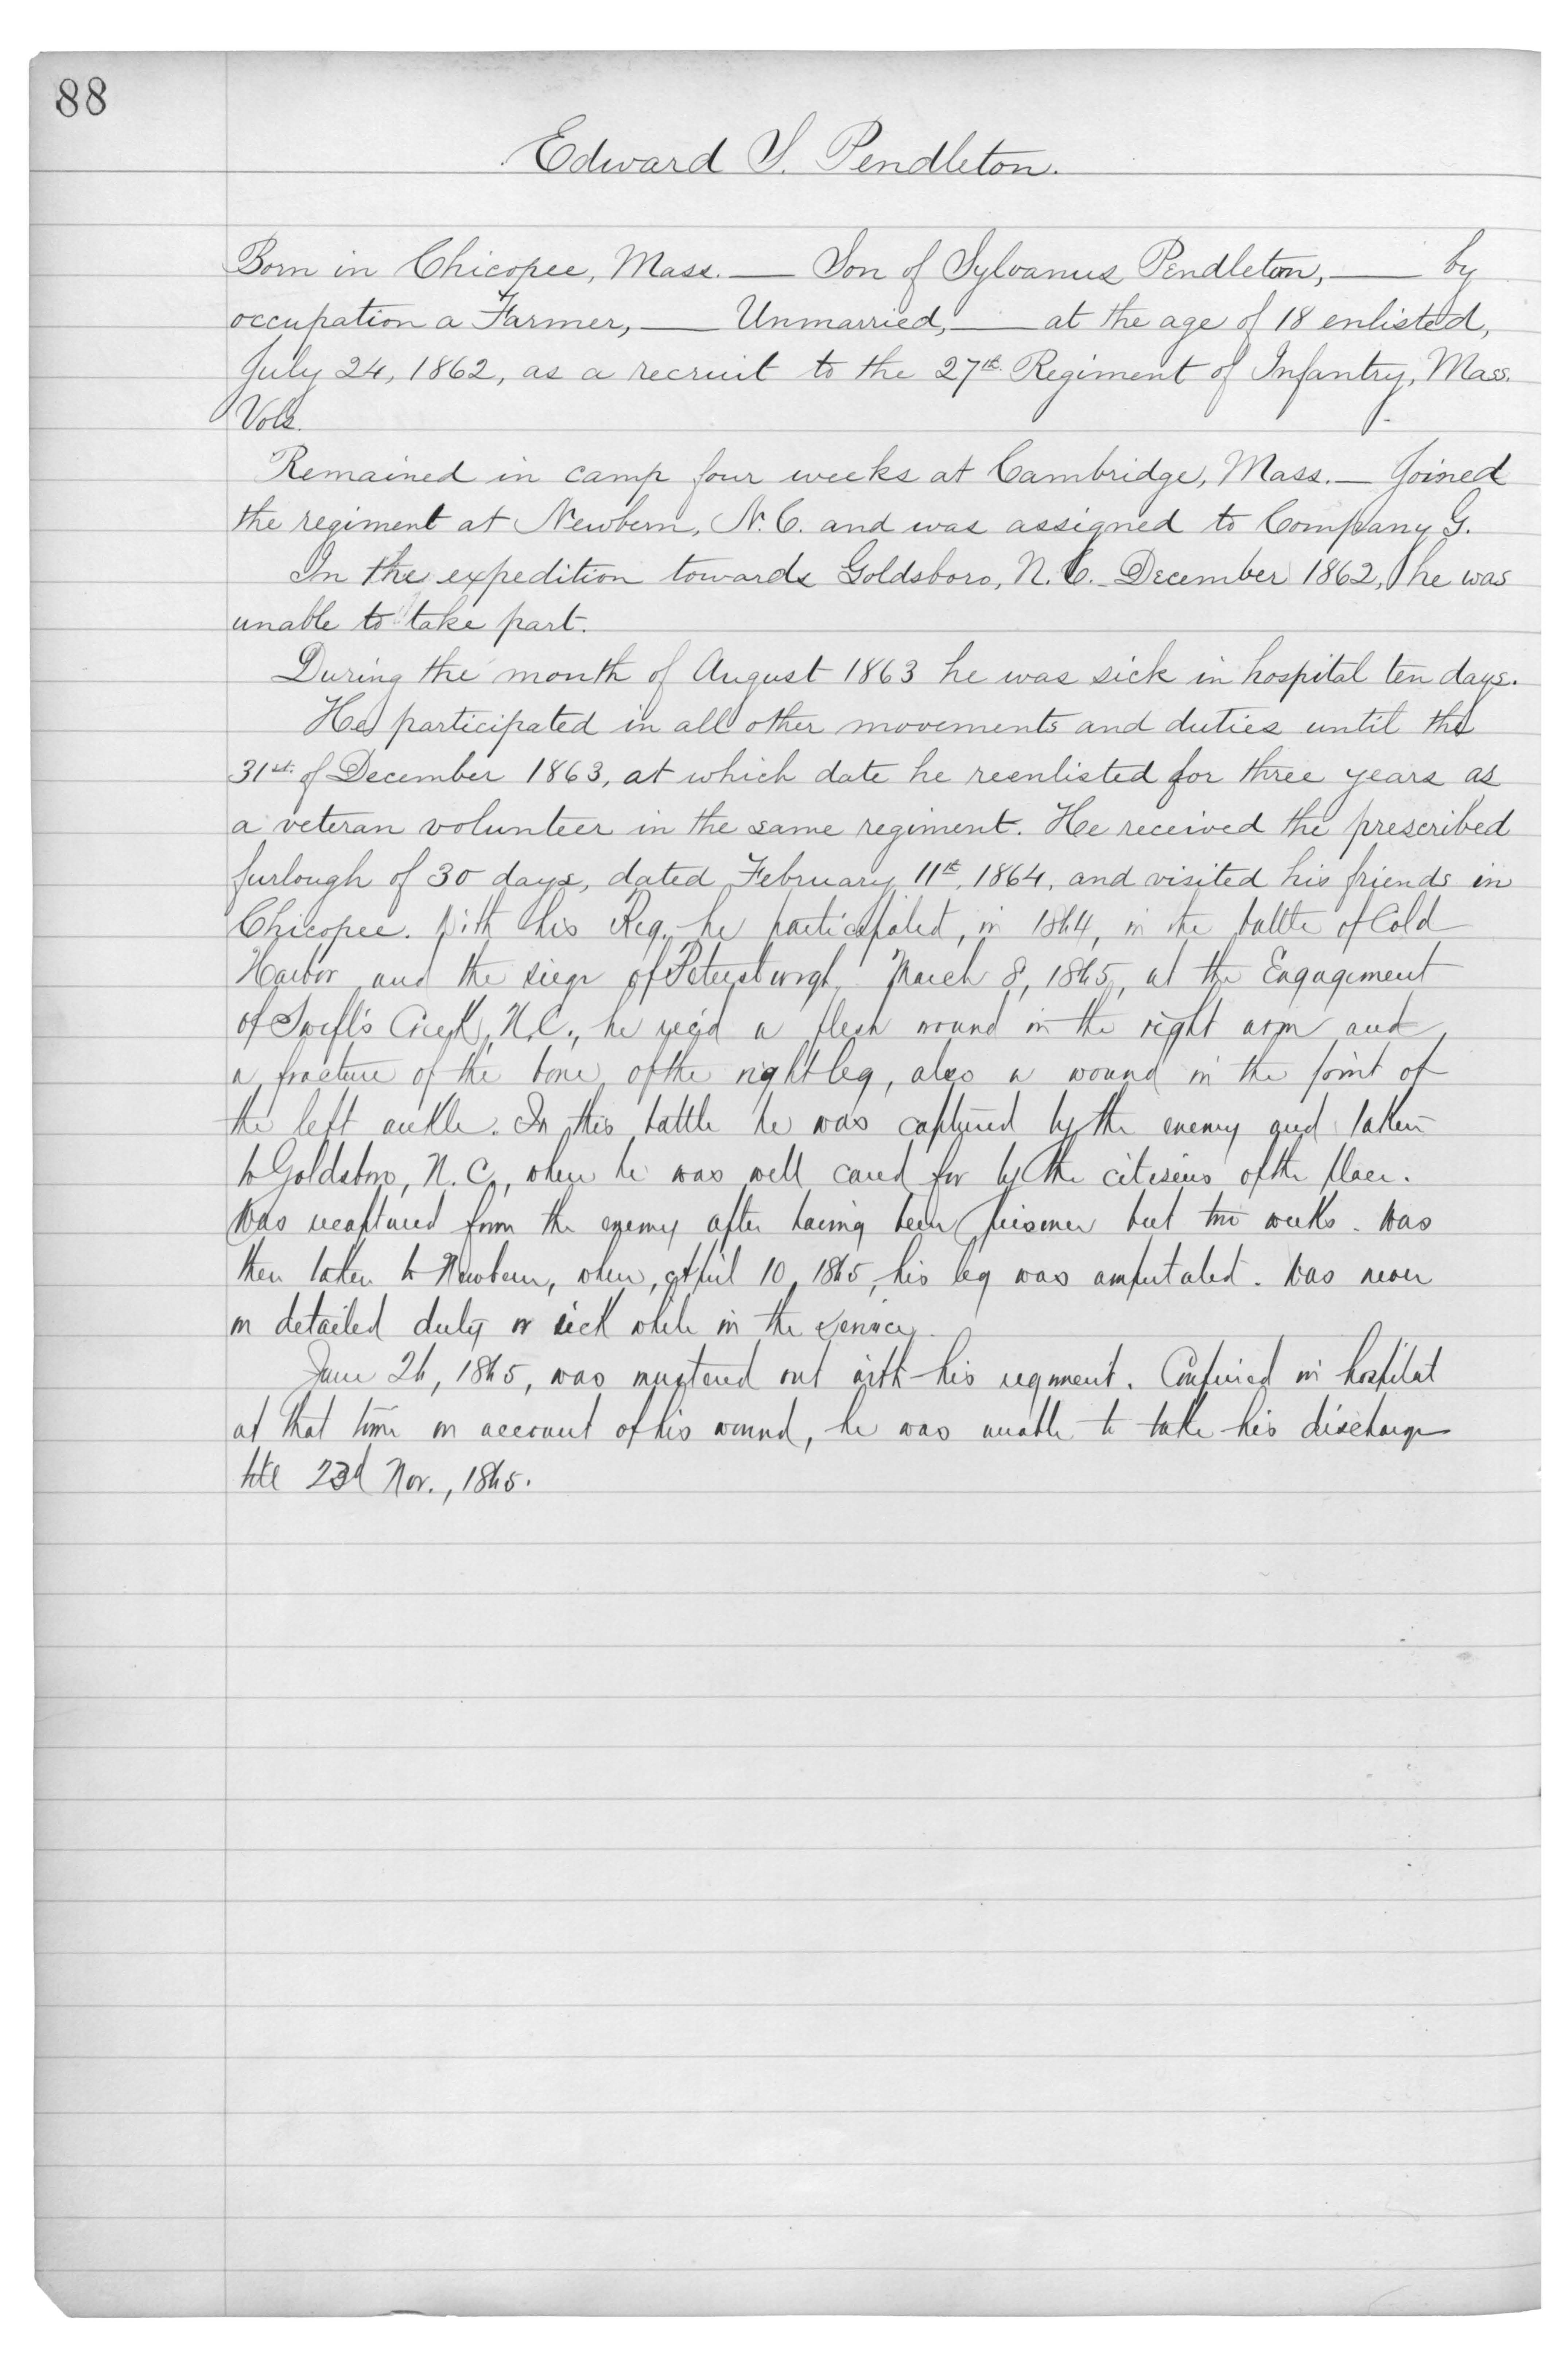 88
Edward S. Pendleton.
Born in Chicopee, Mass. — Son of Sylvanus Pendleton, — by
occupation a Farmer, — Unmarried, — at the age of 18 enlisted,
July 24, 1862, as a recruit to the 27th Regiment of Infantry, Mass.
Vols.
Remained in camp four weeks at Cambridge, Mass. — Joined
the regiment at Newbern, N.C. and was assigned to Company G.
In the expedition towards Goldsboro, N.C. December 1862, he was
unable to take part.
During the month of August 1863 he was sick in hospital ten days.
He participated in all other movements and duties until the
31st of December 1863, at which date he reenlisted for three years as
a veteran volunteer in the same regiment. He received the prescribed
furlough of 30 days, dated February 11th, 1864, and visited his friends in
Chicopee. With his Reg. he participated, in 1864, in the battle of Cold
Harbor and the siege of Petersburgh. March 8, 1865, at the Engagement
of Swift's Creek, N.C., he rec'd a flesh wound in the right arm and
a fracture of the bone of the right leg, also a wound in the joint of
the left ankle. In this battle he was captured by the enemy and taken
to Goldsboro, N.C., where he was well cared for by the citizens of the place.
Was recaptured from the enemy after having been prisoner but two weeks. Was
then taken to Newbern, where, April 10, 1865, his leg was amputated. Was never
on detailed duty or sick while in the service.
June 26, 1865, was mustered out with his regiment. Confined in hospital
at that time on account of his wound, he was unable to take his discharge
till 23d Nov., 1865.